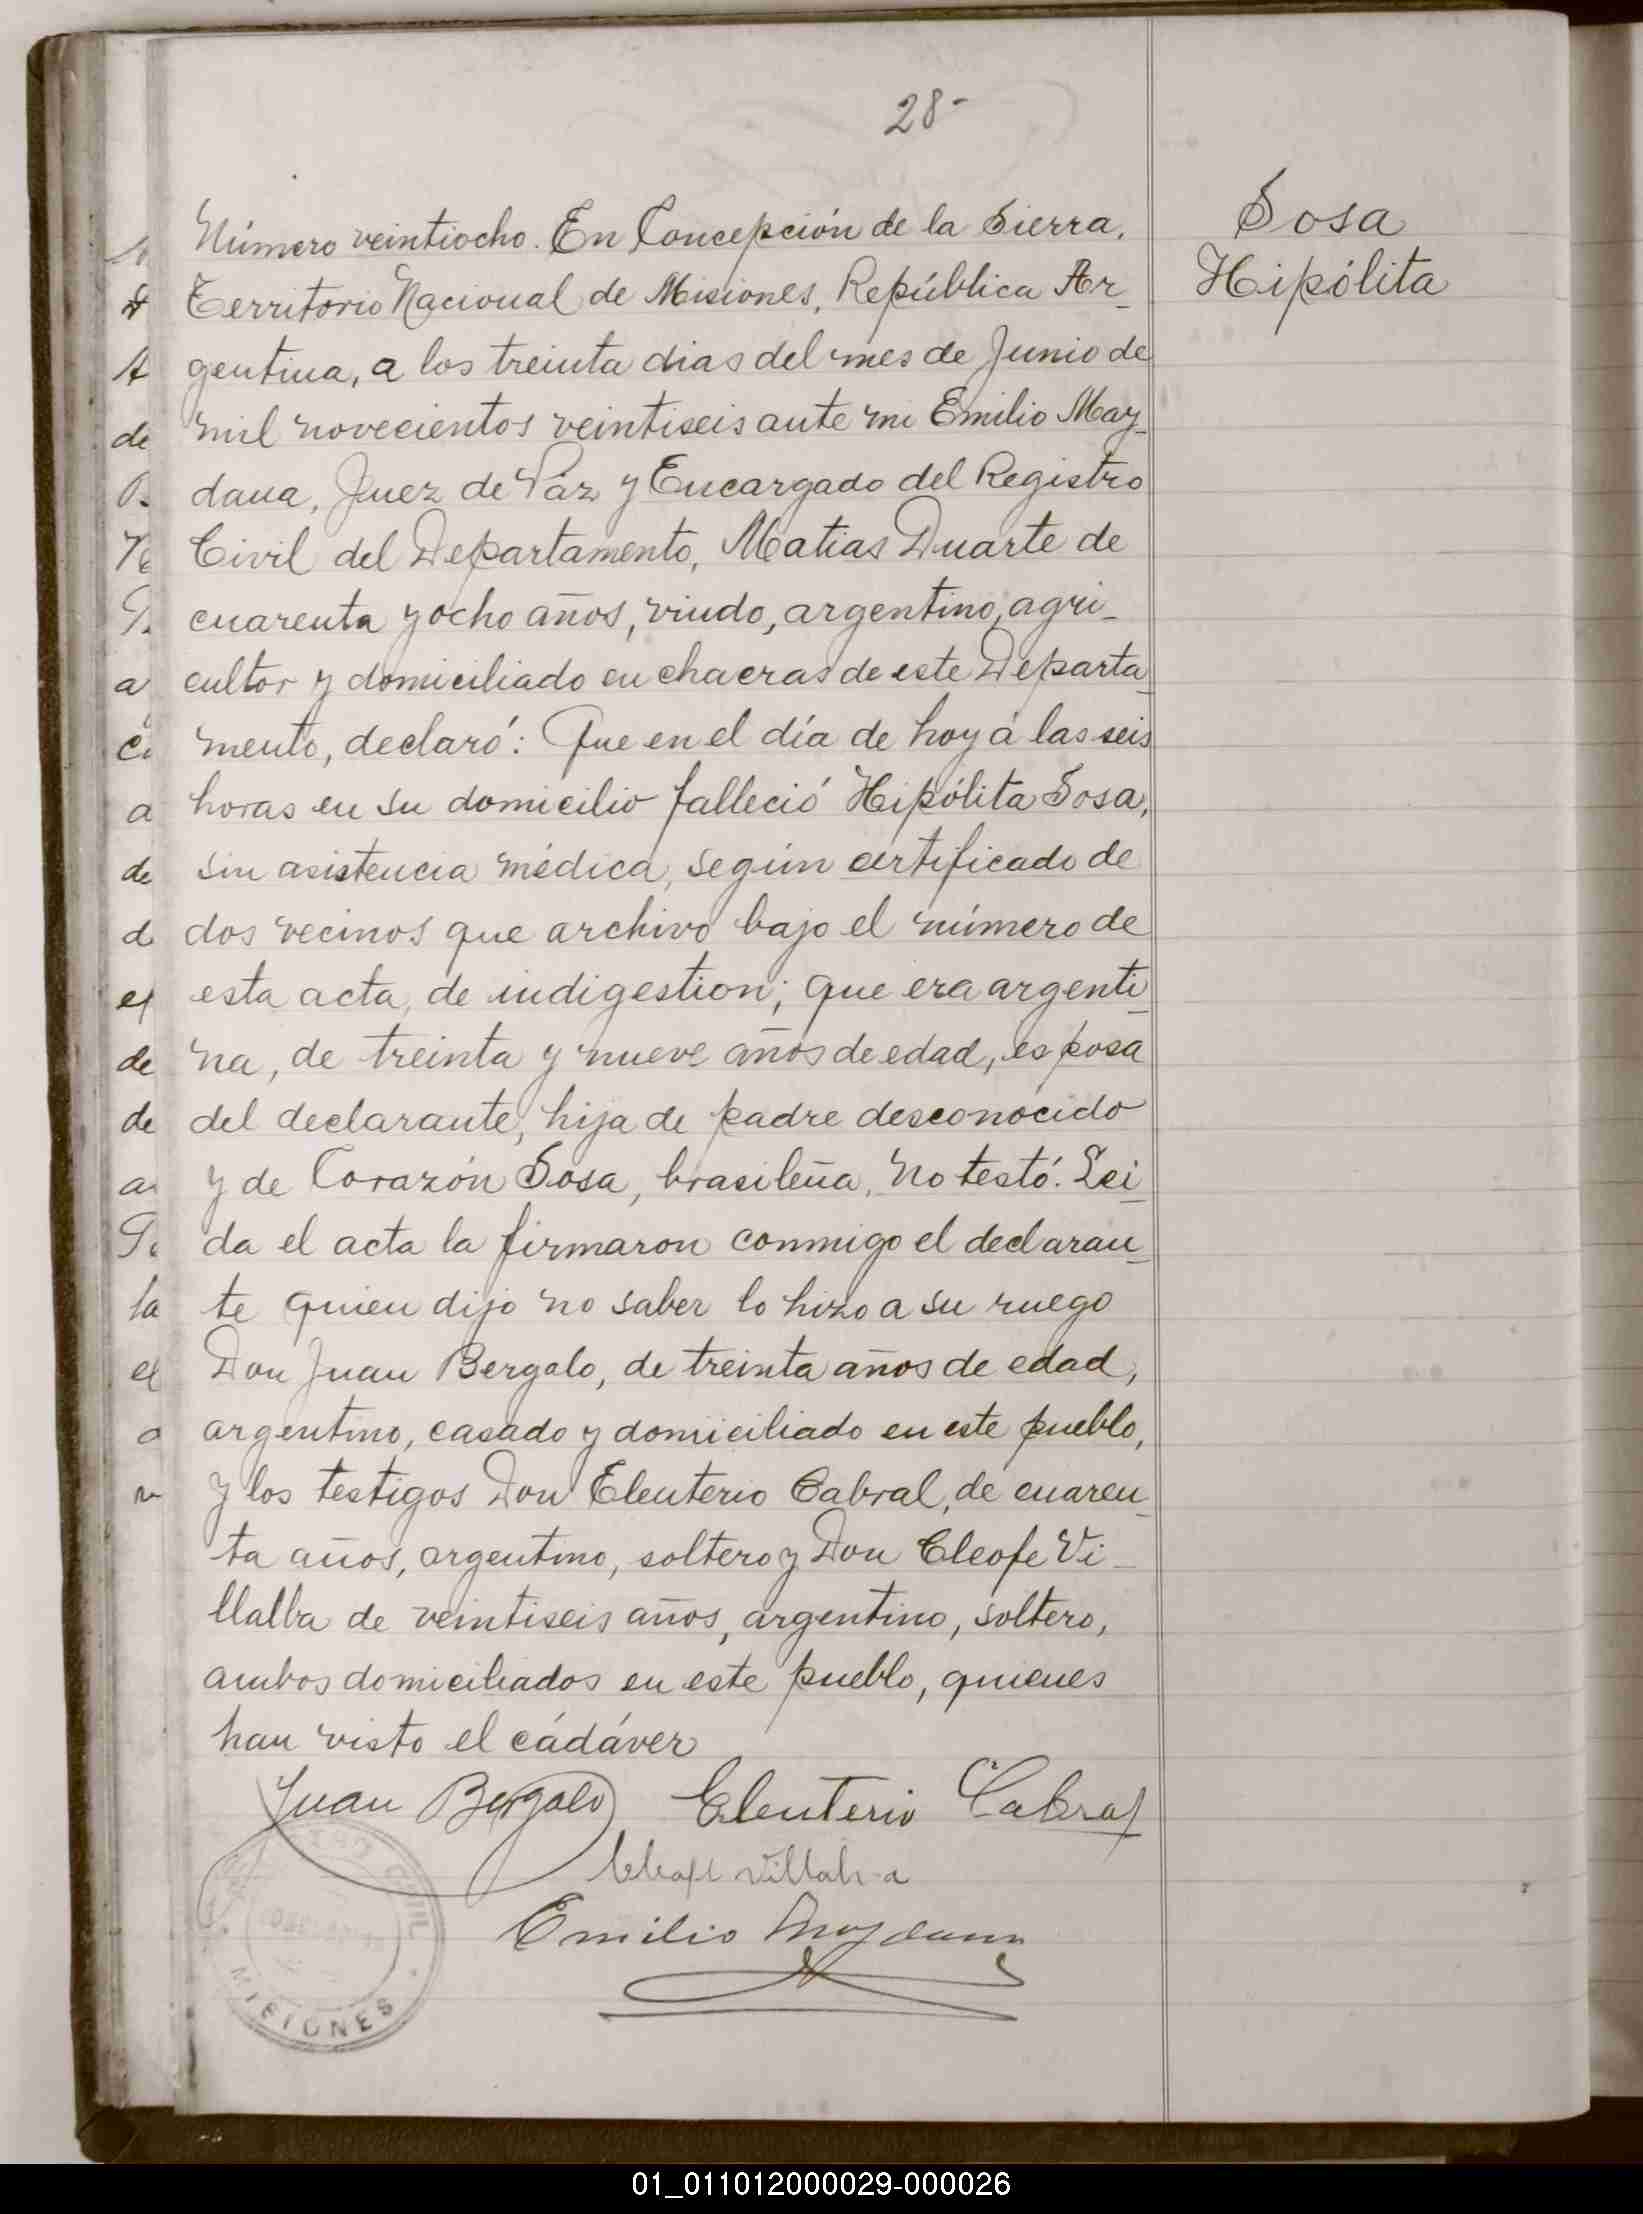 28-
Sosa
Hipólita
Número veintiocho. En Concepción de la Sierra,
Territorio Nacional de Misiones, República Ar-
gentina, a los treinta dias del mes de Junio de
mil novecientos veintiseis ante mi Emilio May-
dana, Juez de Páz y Encargado del Registro
Civil del Departamento, Matias Duarte de
cuarenta y ocho años, viudo, argentino, agri-
cultor y domiciliado en chacras de este Departa-
mento, declaró: Que en el día de hoy á las seis
horas en su domicilio falleció Hipólita Sosa,
sin asistencia médica, según certificado de
dos vecinos que archivo bajo el número de
esta acta, de indigestion; que era argenti-
na, de treinta y nueve años de edad, esposa
del declarante, hija de padre desconocido
y de Corazón Sosa, brasileña, no testó. Lei-
da el acta la firmaron conmigo el declaran-
te quien dijo no saber lo hizo a su ruego
Don Juan Bergalo, de treinta años de edad,
argentino, casado y domiciliado en este pueblo,
y los testigos Don Eleuterio Cabral, de cuaren-
ta años, argentino, soltero y Don Cleofe Vi-
llalba de veintiseis años, argentino, soltero,
ambos domiciliados en este pueblo, quienes
han visto el cádáver
Juan Bergalo Eleuterio Cabral
Cleofe Villalba
Emilio Maydana
CIVIL
MISIONES
01_011012000029-000026